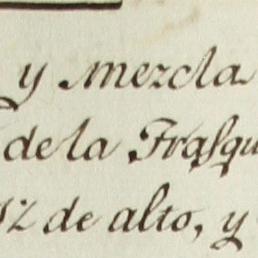 y mezcla
de la Frasqu
12 de alto, y